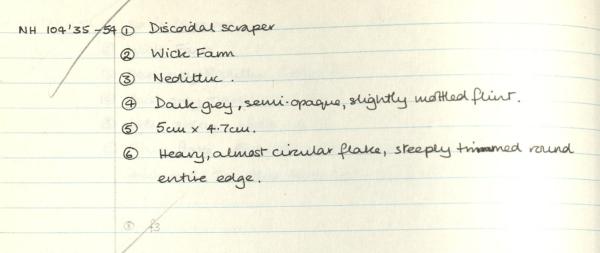 NH 104'35-54 ① Discoidal scraper
② Wick Farm
③ Neolithic.
④ Dark grey, semi-opaque, slightly mottled flint.
⑤ 5cm x 4.7cm.
⑥ Heavy, almost circular flake, steeply trimmed round
entire edge.
⑧ £3